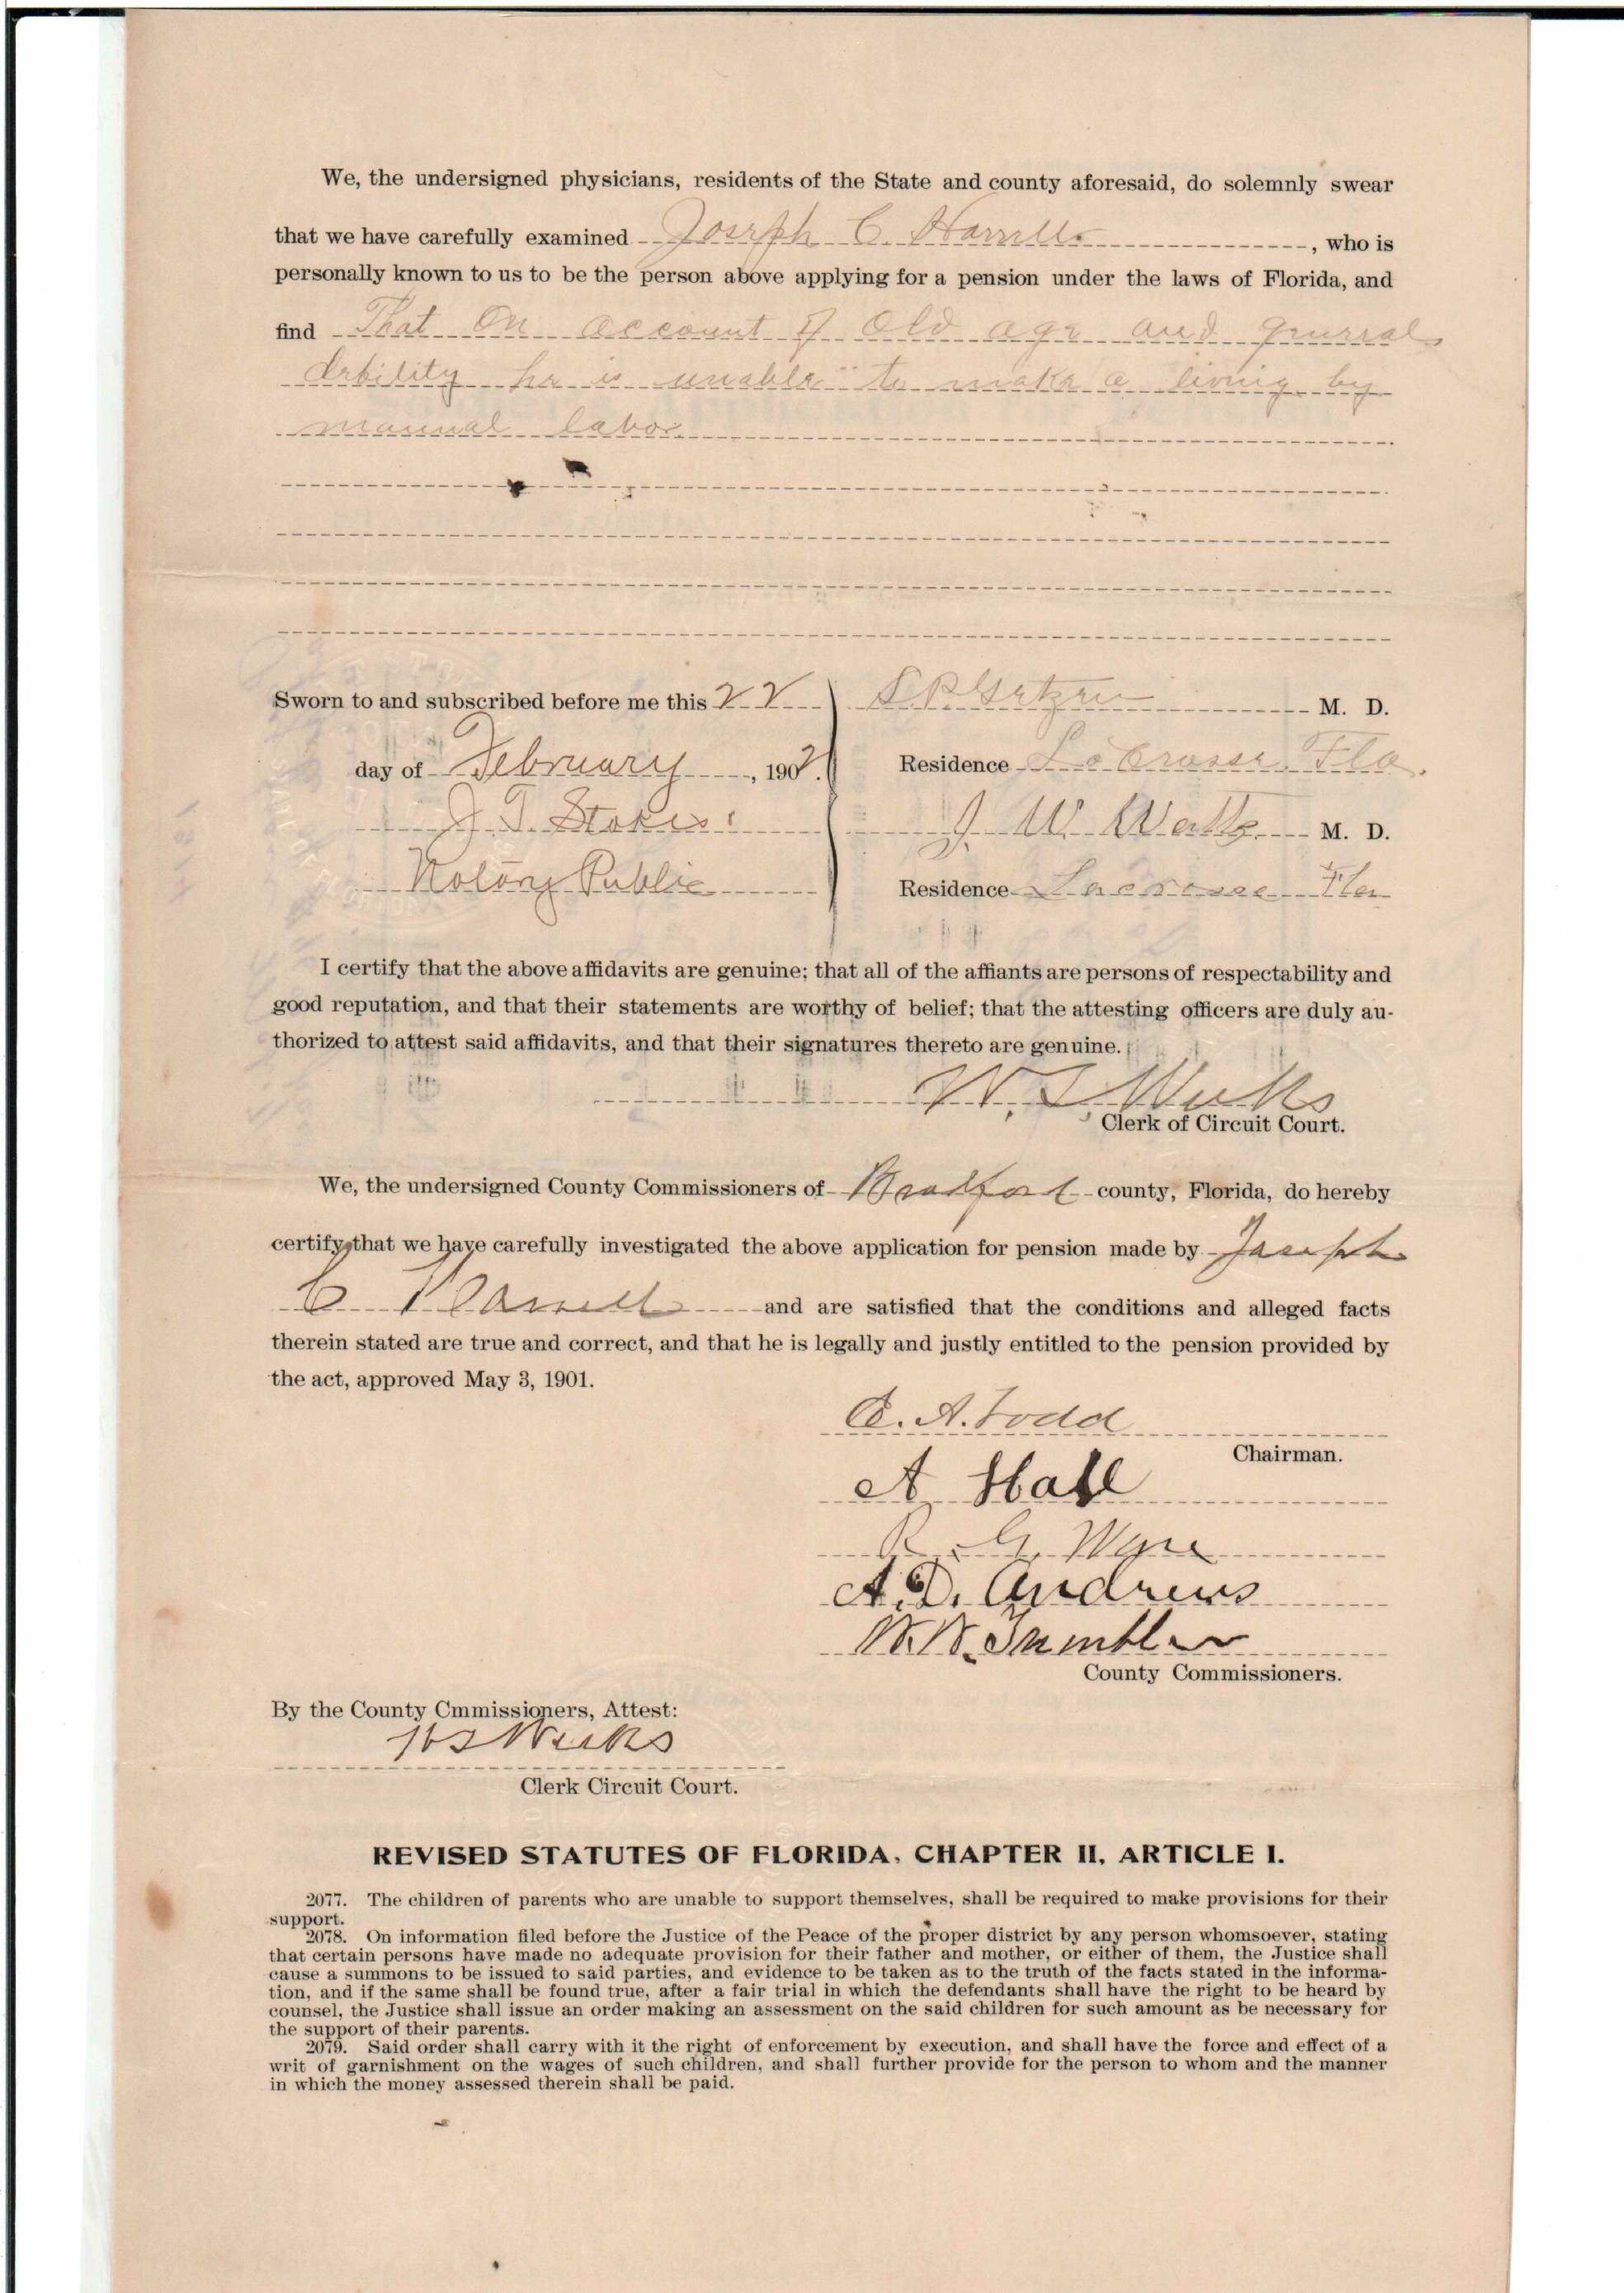 We, the undersigned physicians, residents of the State and county aforesaid, do solemnly swear
that we have carefully examined Joseph C. Harrell, who is
personally known to us to be the person above applying for a pension under the laws of Florida, and
find That On account of Old age and general
debility he is unable to make a living by
mannual labor
Sworn to and subscribed before me this 22
day of February, 1902.
J. T. Stokes
Notary Public
S. P. Getzen M. D.
Residence LaCrosse, Fla.
J. W. M. D.
Residence Lacrosse Fla
I certify that the above affidavits are genuine; that all of the affiants are persons of respectability and
good reputation, and that their statements are worthy of belief; that the attesting officers are duly au-
thorized to attest said affidavits, and that their signatures thereto are genuine.
W. S. Weeks
Clerk of Circuit Court.
We, the undersigned County Commissioners of Bradford county, Florida, do hereby
certify that we have carefully investigated the above application for pension made by Joseph
C Harrell and are satisfied that the conditions and alleged facts
therein stated are true and correct, and that he is legally and justly entitled to the pension provided by
the act, approved May 3, 1901.
E. A. Todd
Chairman.
A Hall
R. G. Ware
A. D. Andrews
W. W. Tumblin
County Commissioners.
By the County Cmmissioners, Attest:
W S Weeks
Clerk Circuit Court.
REVISED STATUTES OF FLORIDA, CHAPTER II, ARTICLE I.
2077. The children of parents who are unable to support themselves, shall be required to make provisions for their
support.
2078. On information filed before the Justice of the Peace of the proper district by any person whomsoever, stating
that certain persons have made no adequate provision for their father and mother, or either of them, the Justice shall
cause a summons to be issued to said parties, and evidence to be taken as to the truth of the facts stated in the informa-
tion, and if the same shall be found true, after a fair trial in which the defendants shall have the right to be heard by
counsel, the Justice shall issue an order making an assessment on the said children for such amount as be necessary for
the support of their parents.
2079. Said order shall carry with it the right of enforcement by execution, and shall have the force and effect of a
writ of garnishment on the wages of such children, and shall further provide for the person to whom and the manner
in which the money assessed therein shall be paid.